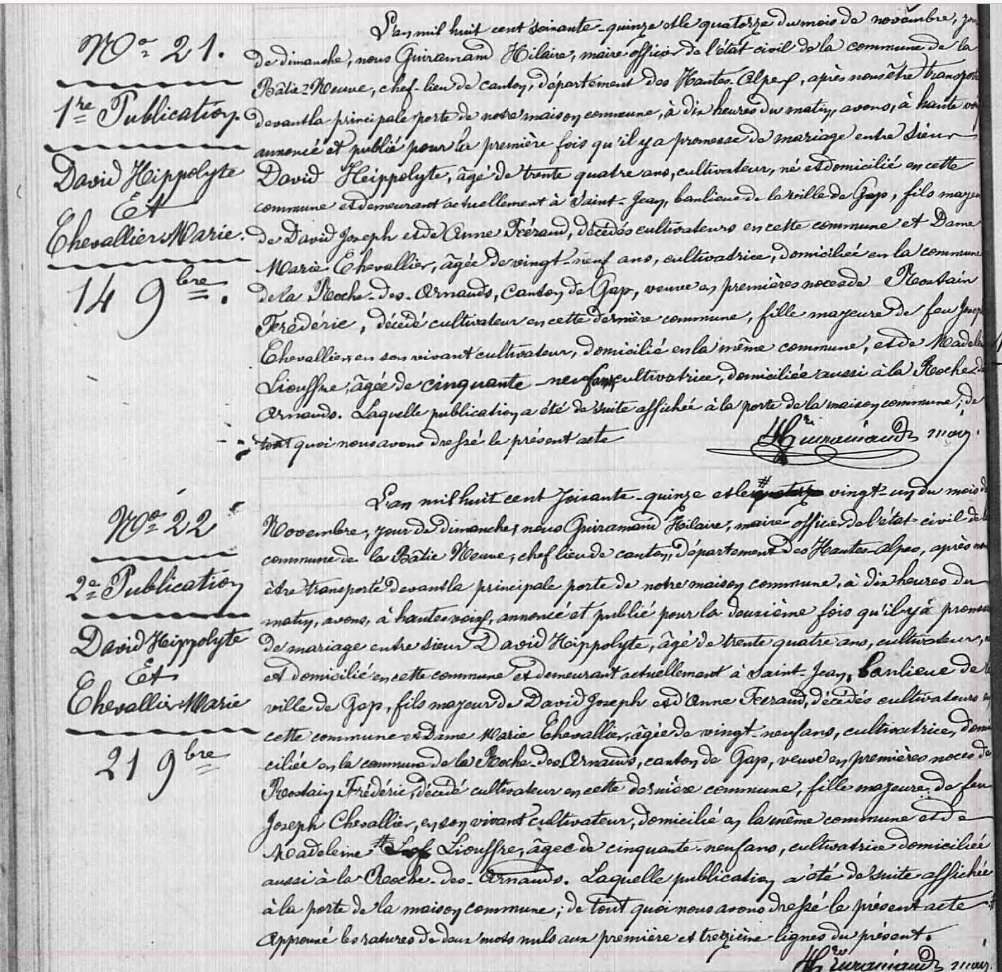 N° 21.
1re Publication
David Hippolyte
Et
Chevallier Marie.
14 9bre.
L'an mil huit cent soixante-quinze et le quatorze du mois de novembre, jour
de dimanche, nous Guiramand Hilaire, maire officier de l'état civil de la commune de la
Bâtie-Neuve, chef-lieu de canton, département des Hautes-Alpes, après nous être transporté
devant la principale porte de notre maison commune, à dix heures du matin, avons, à haute voix
annoncé et publié pour la première fois qu'il y a promesse de mariage entre sieur
David Heippolyte, âgé de trente quatre ans, cultivateur, né et domicilié en cette
commune et demeurant actuellement à Saint-Jean, banlieue de la ville de Gap, fils majeur
de David Joseph et de Anne Féraud, décédés cultivateurs en cette commune et Dame
Marie Chevallier, âgée de vingt-neuf ans, cultivatrice, domiciliée en la commune
de la Roche-des-Arnauds, canton de Gap, veuve en premières noces de Rostain
Frédéric, décédé cultivateur en cette dernière commune, fille majeure de feu Joseph
Chevallier en son vivant cultivateur, domicilié en la même commune, et de Madeleine
Liouffre, âgée de cinquante-neuf ans, cultivatrice, domiciliée aussi à la Roche des
Arnauds. Laquelle publication a été de suite affichée à la porte de la maison commune; de
tout quoi nous avons dressé le présent acte
Hri Guiramand maire.
N° 22
2e Publication
David Hippolyte
Et
Chevallier Marie
21 9bre
L'an mil huit cent soixante-quinze et le # quatorze vingt-un du mois de
Novembre, jour de dimanche, nous Guiramand Hilaire, maire officier de l'état-civil de la
commune de la Bâtie Neuve, chef lieu de canton, département des Hautes-Alpes, après nous
être transporté devant la principale porte de notre maison commune, à dix heures du
matin, avons, à haute voix, annoncé et publié pour la deuxième fois qu'il y a promesse
de mariage entre sieur David Hippolyte, âgé de trente quatre ans, cultivateur,
et domicilié en cette commune et demeurant actuellement à Saint-Jean, banlieue de la
ville de Gap, fils majeur de David Joseph et d'Anne Féraud, décédés cultivateurs en
cette commune et Dame Marie Chevallier, âgée de vingt-neuf ans, cultivatrice, domi
ciliée en la commune de la Roche-des-Arnauds, canton de Gap, veuve en premières noces de
Rostain Frédéric, décédé cultivateur en cette dernière commune, fille majeure de feu
Joseph Chevallier, en son vivant cultivateur, domicilié en la même commune et de
Madeleine # Liouffre, âgée de cinquante-neuf ans, cultivatrice domiciliée
aussi à la Roche-des-Arnauds. Laquelle publication a été de suite affichée
à la porte de la maison commune; de tout quoi nous avons dressé le présent acte
Approuvé les ratures de deux mots nuls aux première et treizième lignes du présent.
Hri Guiramand maire.